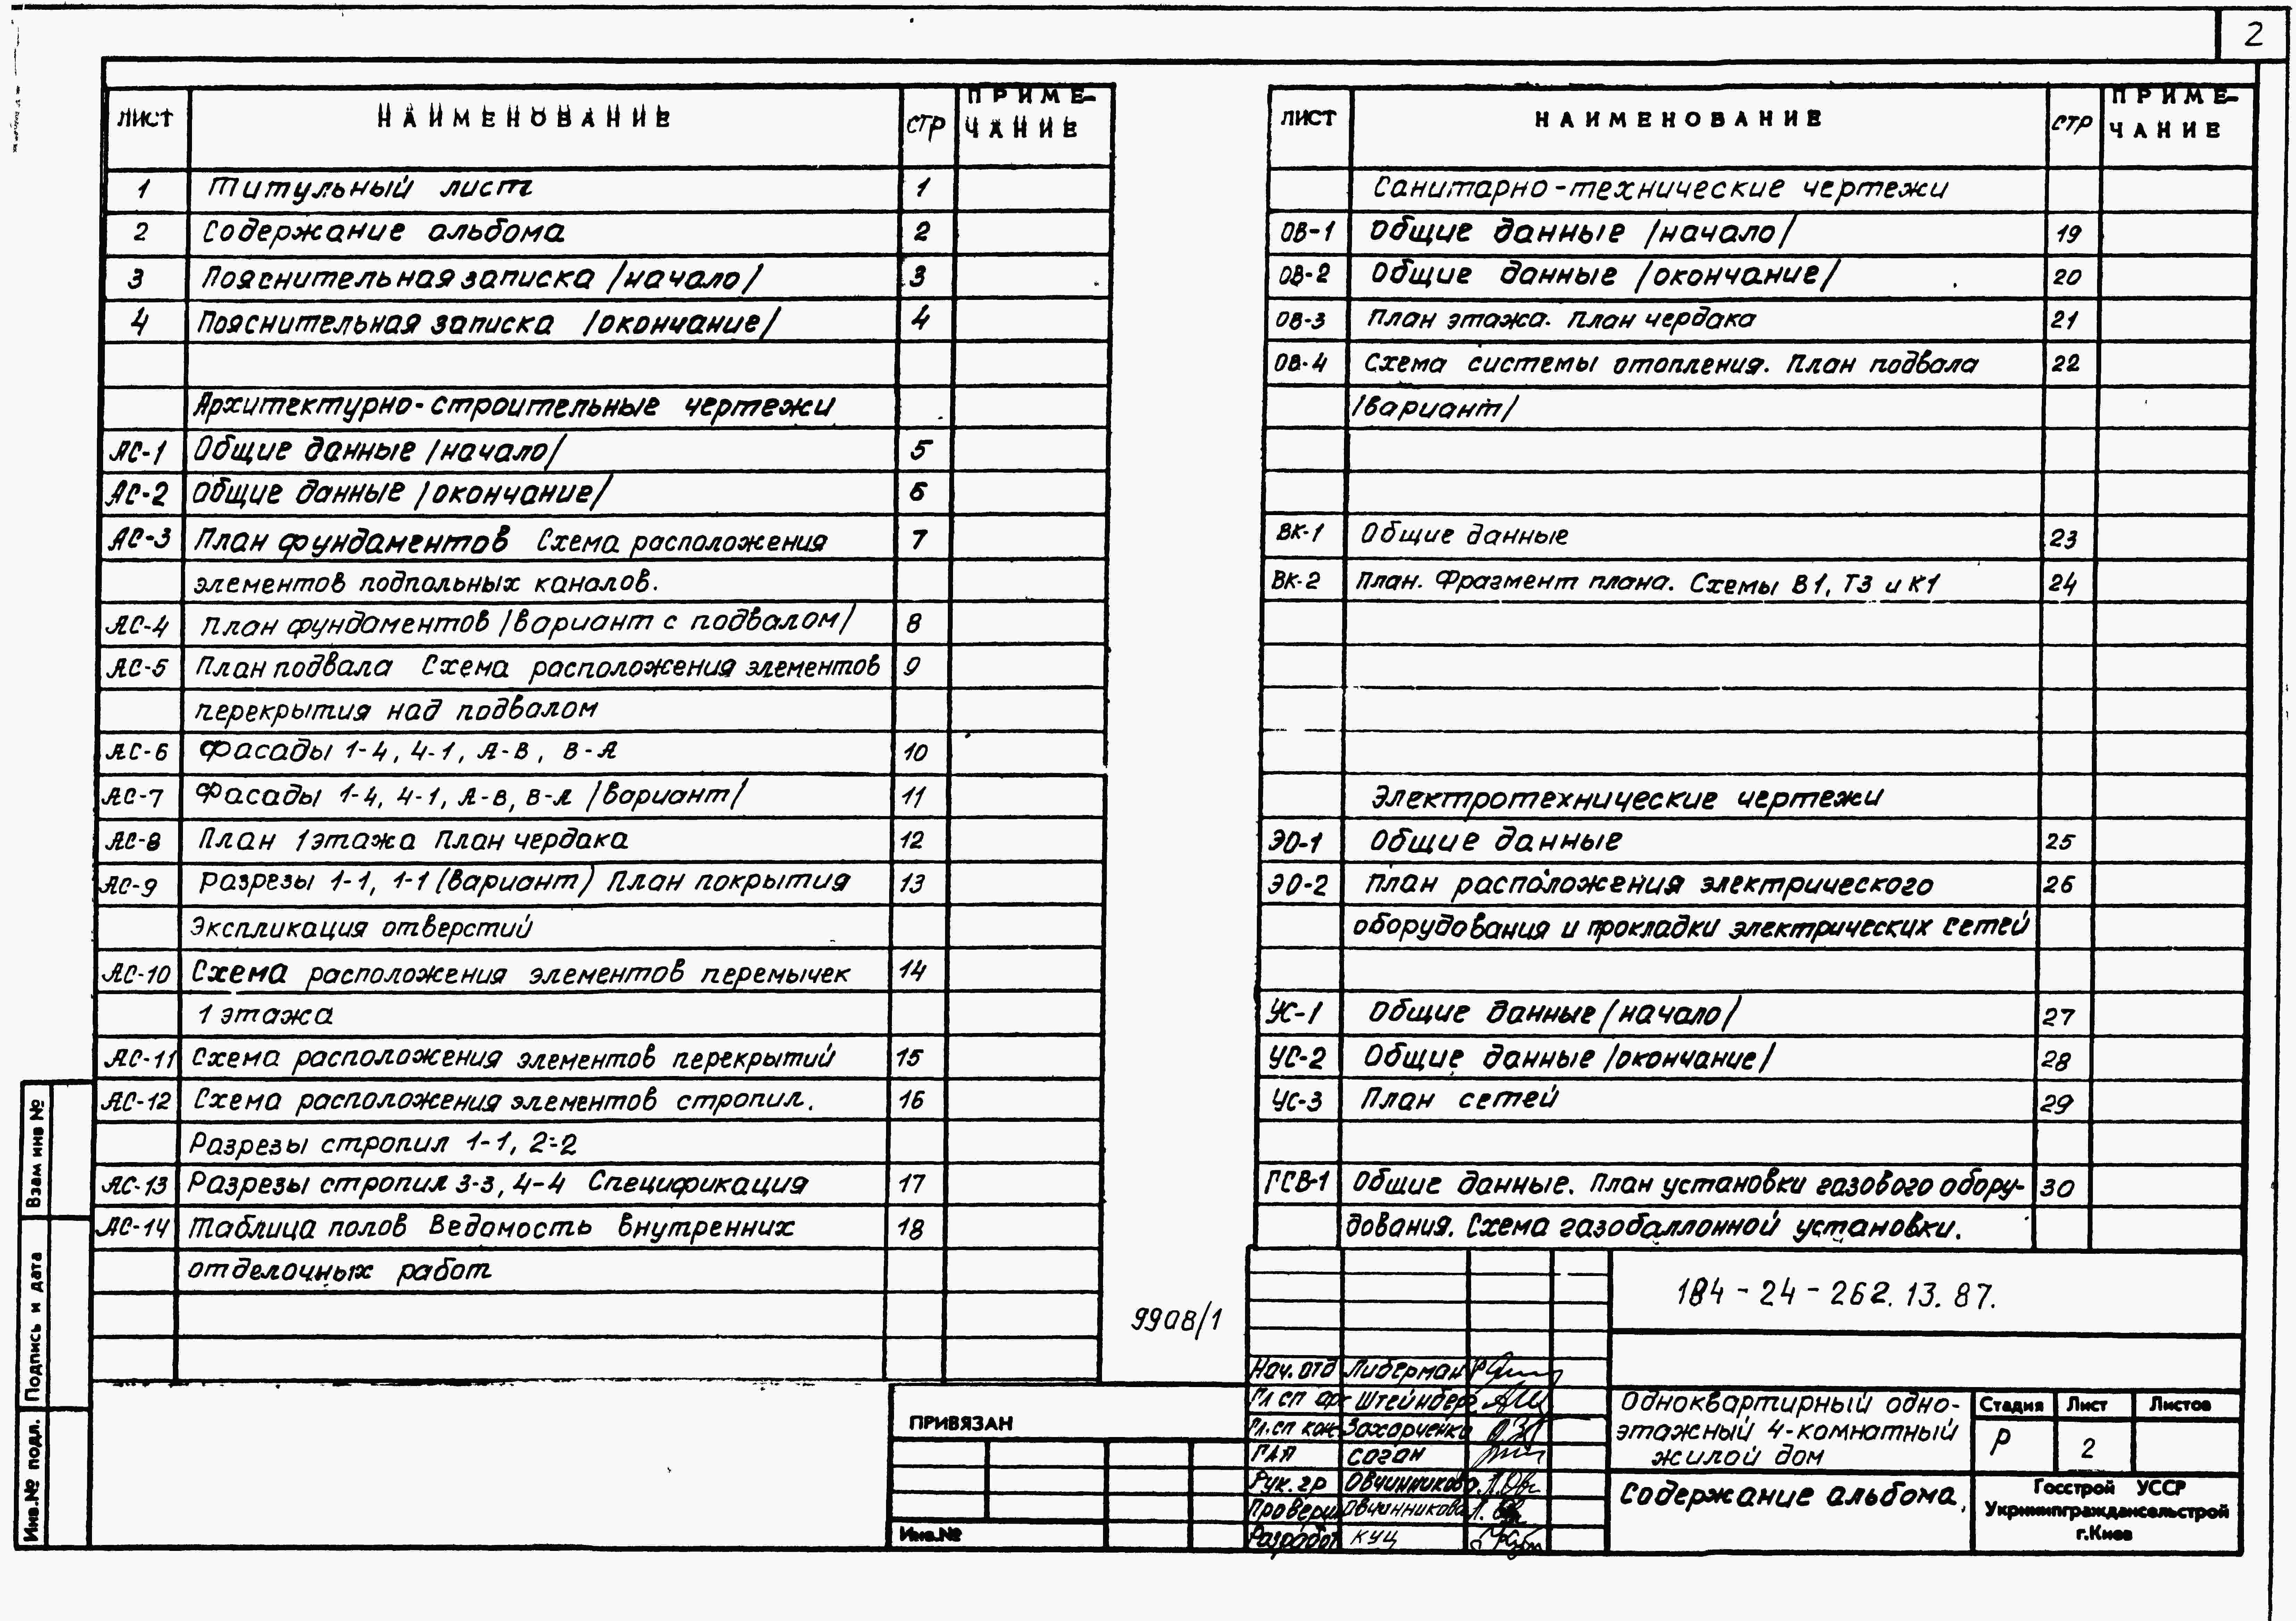 2
ЛИСТ НАИМЕНОВАНИЕ СТР ПРИМЕ-
ЧАНИЕ
1 Титульный лист 1
2 Содержание альбома 2
3 Пояснительная записка /начало/ 3
4 Пояснительная записка /окончание/ 4
Архитектурно-строительные чертежи
АС-1 Общие данные /начало/ 5
АС-2 Общие данные /окончание/ 6
АС-3 План фундаментов Схема расположения 7
элементов подпольных каналов.
АС-4 План фундаментов /вариант с подвалом/ 8
АС-5 План подвала Схема расположения элементов 9
перекрытия над подвалом
АС-6 Фасады 1-4, 4-1, А-В, В-А 10
АС-7 Фасады 1-4, 4-1, А-В, В-А /вариант/ 11
АС-8 План 1 этажа План чердака 12
АС-9 Разрезы 1-1, 1-1 (вариант) План покрытия 13
Экспликация отверстий
АС-10 Схема расположения элементов перемычек 14
1 этажа
АС-11 Схема расположения элементов перекрытий 15
АС-12 Схема расположения элементов стропил. 16
Разрезы стропил 1-1, 2-2
АС-13 Разрезы стропил 3-3, 4-4 Спецификация 17
АС-14 Таблица полов Ведомость внутренних 18
отделочных работ
ЛИСТ НАИМЕНОВАНИЕ СТР ПРИМЕ-
ЧАНИЕ
Санитарно-технические чертежи
ОВ-1 Общие данные /начало/ 19
ОВ-2 Общие данные /окончание/ 20
ОВ-3 План этажа. План чердака 21
ОВ-4 Схема системы отопления. План подвала 22
/вариант/
ВК-1 Общие данные 23
ВК-2 План. Фрагмент плана. Схемы В1, Т3 и К1 24
Электротехнические чертежи
ЭО-1 Общие данные 25
ЭО-2 План расположения электрического 26
оборудования и прокладки электрических сетей
УС-1 Общие данные /начало/ 27
УС-2 Общие данные /окончание/ 28
УС-3 План сетей 29
ГСВ-1 Общие данные. План установки газового обору- 30
дования. Схема газобаллонной установки.
9908/1
184-24-262.13.87.
Нач. отд Либерман
Гл сп арх Штейнберг
Гл. сп кон Захарченко
ГАП Соган
Рук. гр Овчинникова
Проверил Овчинникова
Разработ Куц
Одноквартирный одно-
этажный 4-комнатный
жилой дом
Содержание альбома.
Стадия Лист Листов
Р 2
Госстрой УССР
Укрниипграждансельстрой
г.Киев
ПРИВЯЗАН
Инв.№
Взам инв №
Подпись и дата
Инв.№ подл.